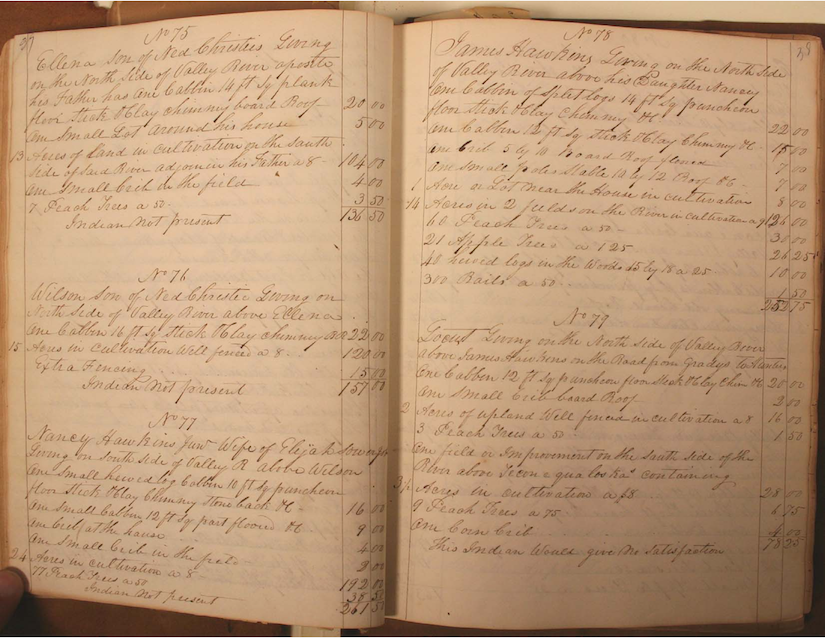 27
No 75
Ellena Son of Ned Christies Living
on the North Side of Valley River aposite
his Father has one Cabbin 14 ft Sq plank
floor Stick & Clay chimmy board Roof 20 00
one Small Lot around his house 5 00
13 Acres of Land in cultivation on the South
Side of Said River adjoin in his Father a 8 - 104 00
one Small Crib in the field 4 00
7 Peach Trees a 50 - 3 50
Indian Not present 136 50
No 76
Wilson Son of Ned Christie Living on
North Side of Valley River above Ellena
one Cabbin 16 ft Sq Stick & Clay chimney BR 22 00
15 Acres in cultivation Well fenced a 8 - 120 00
Extra Fencing 15 00
Indian Not present 157 00
No 77
Nancy Hawkins Junr Wife of Elijah
Living on South Side of Valley R above Wilson
one Small hewed log Cabbin 16 ft Sq puncheon
floor Stick & Clay Chimney Stone back &c - 16 00
one Small Cabbin 12 ft Sq part floored &c 9 00
one Crib at the house 4 00
one Small Crib in the field 2 00
24 Acres in cultivation a 8 192 00
77 Peach Trees a 50 38 50
Indian Not present 261 50
No 78
James Hawkins Living on the North Side
of Valley River above his Daughter Nancy
one Cabbin of Split logs 14 ft Sq puncheon
floor Stick & Clay Chimmy &c 22 00
one Cabbin 12 ft Sq Stick & Clay Chimmy &c - 15 00
one Crib 5 by 10 board Roof 7 00
one Small Stable 10 by 12 Roof &c - 7 00
1 Acre or Lot Near the House in cultivation 8 00
14 Acres in 2 fields on the River in cultivation a 9 126 00
60 Peach Trees a 50 - 30 00
21 Apple Trees a 1 25 26 25
40 hewed logs in the Woods by 18 a 25 - 10 00
300 Rails a 50 - 1 50
252 75
No 79
Locust Living on the North Side of Valley River
above James Hawkins on the Road from Gradys to
one Cabbin 12 ft Sq puncheon floor Stick & Clay Chim &c 20 00
one Small Crib board Roof 2 00
2 Acres of upland Well fenced in cultivation a 8 16 00
3 Peach Trees a 50 - 1 50
one field or Improvement on the South Side of the
River above containing
3 1/2 Acres in cultivation a $8 28 00
9 Peach Trees a 75 - 6 75
one Corn Crib 4 00
This Indian Would give No Satisfaction 78 25